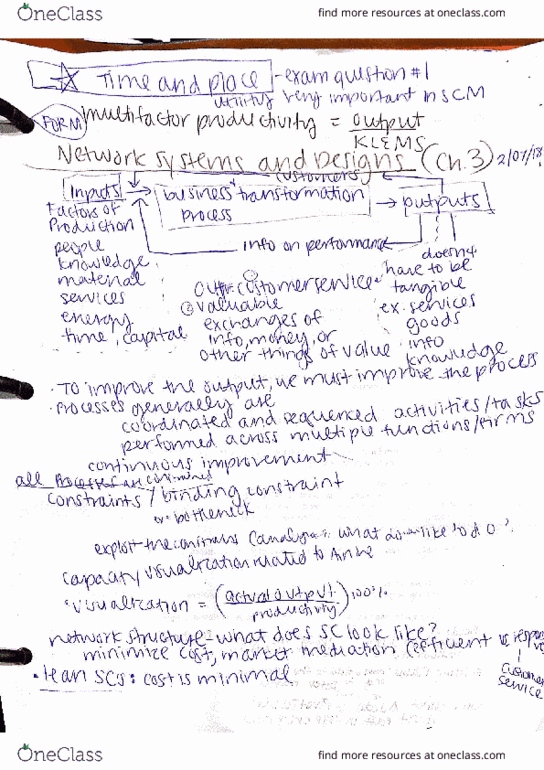 OneClass
find more resources at oneclass.com
☆ Time and place - exam question #1
utility very important in SCM
FORM multifactor productivity = output
KLEMS
Network systems and Designs (Ch.3) 2/07/18
customers
Inputs → business transformation → outputs
process
Factors of
Production
people
knowledge
material
services
energy
time, capital
info on performance
doesn't
have to be
tangible
ex. services
goods
info
knowledge
customer service
② valuable
exchanges of
info, money, or
other things of value
· To improve the output, we must improve the process
· Processes generally are
coordinated and sequenced activities/tasks
performed across multiple functions/firms
continuous improvement
all
constraints / binding constraint
or bottleneck
exploit the constraint
capacity related to
= (actual output / productivity) 100%
network structure: what does SC look like?
minimize cost, market mediation (efficient vs
customer
service
· lean SCs: cost is minimal
OneClass
find more resources at oneclass.com